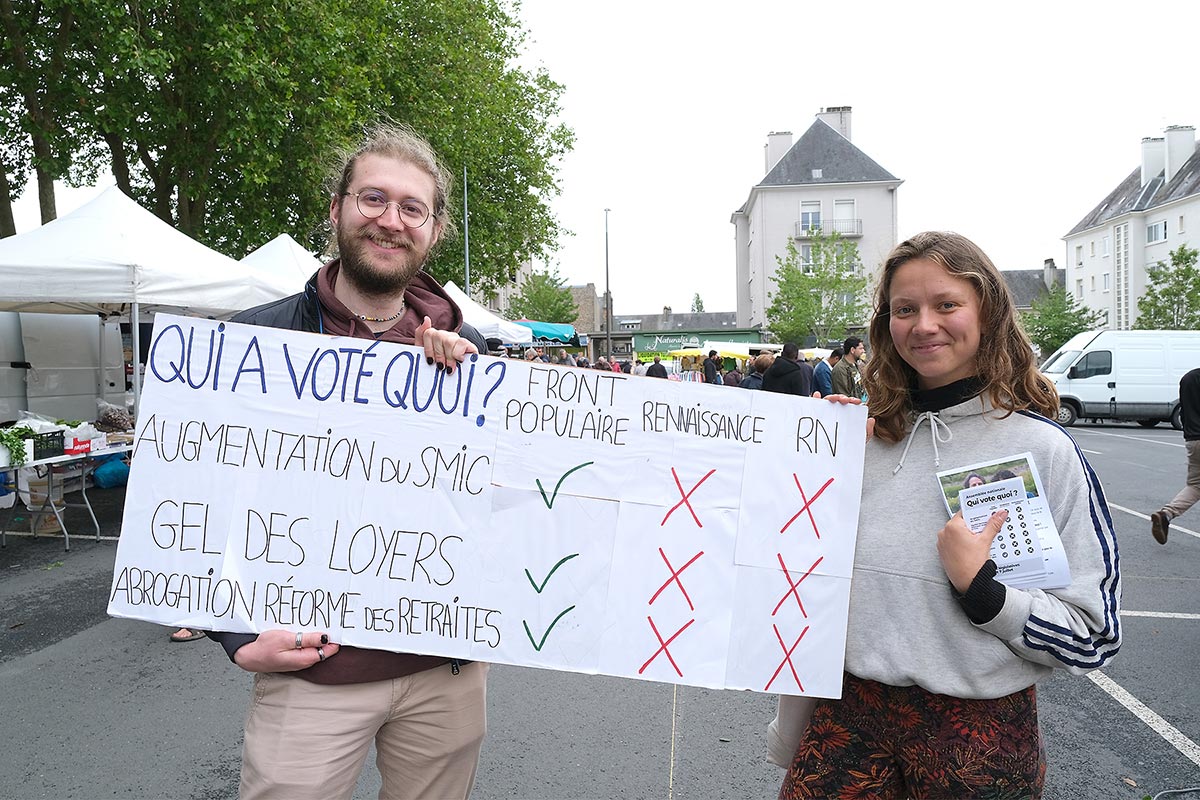 QUI A VOTÉ QUOI ?
FRONT
POPULAIRE
RENNAISSANCE
RN
AUGMENTATION DU SMIC
GEL DES LOYERS
ABROGATION RÉFORME DES RETRAITES
Naturalia
Assemblée nationale
Qui vote quoi ?
Qui vote quoi ?